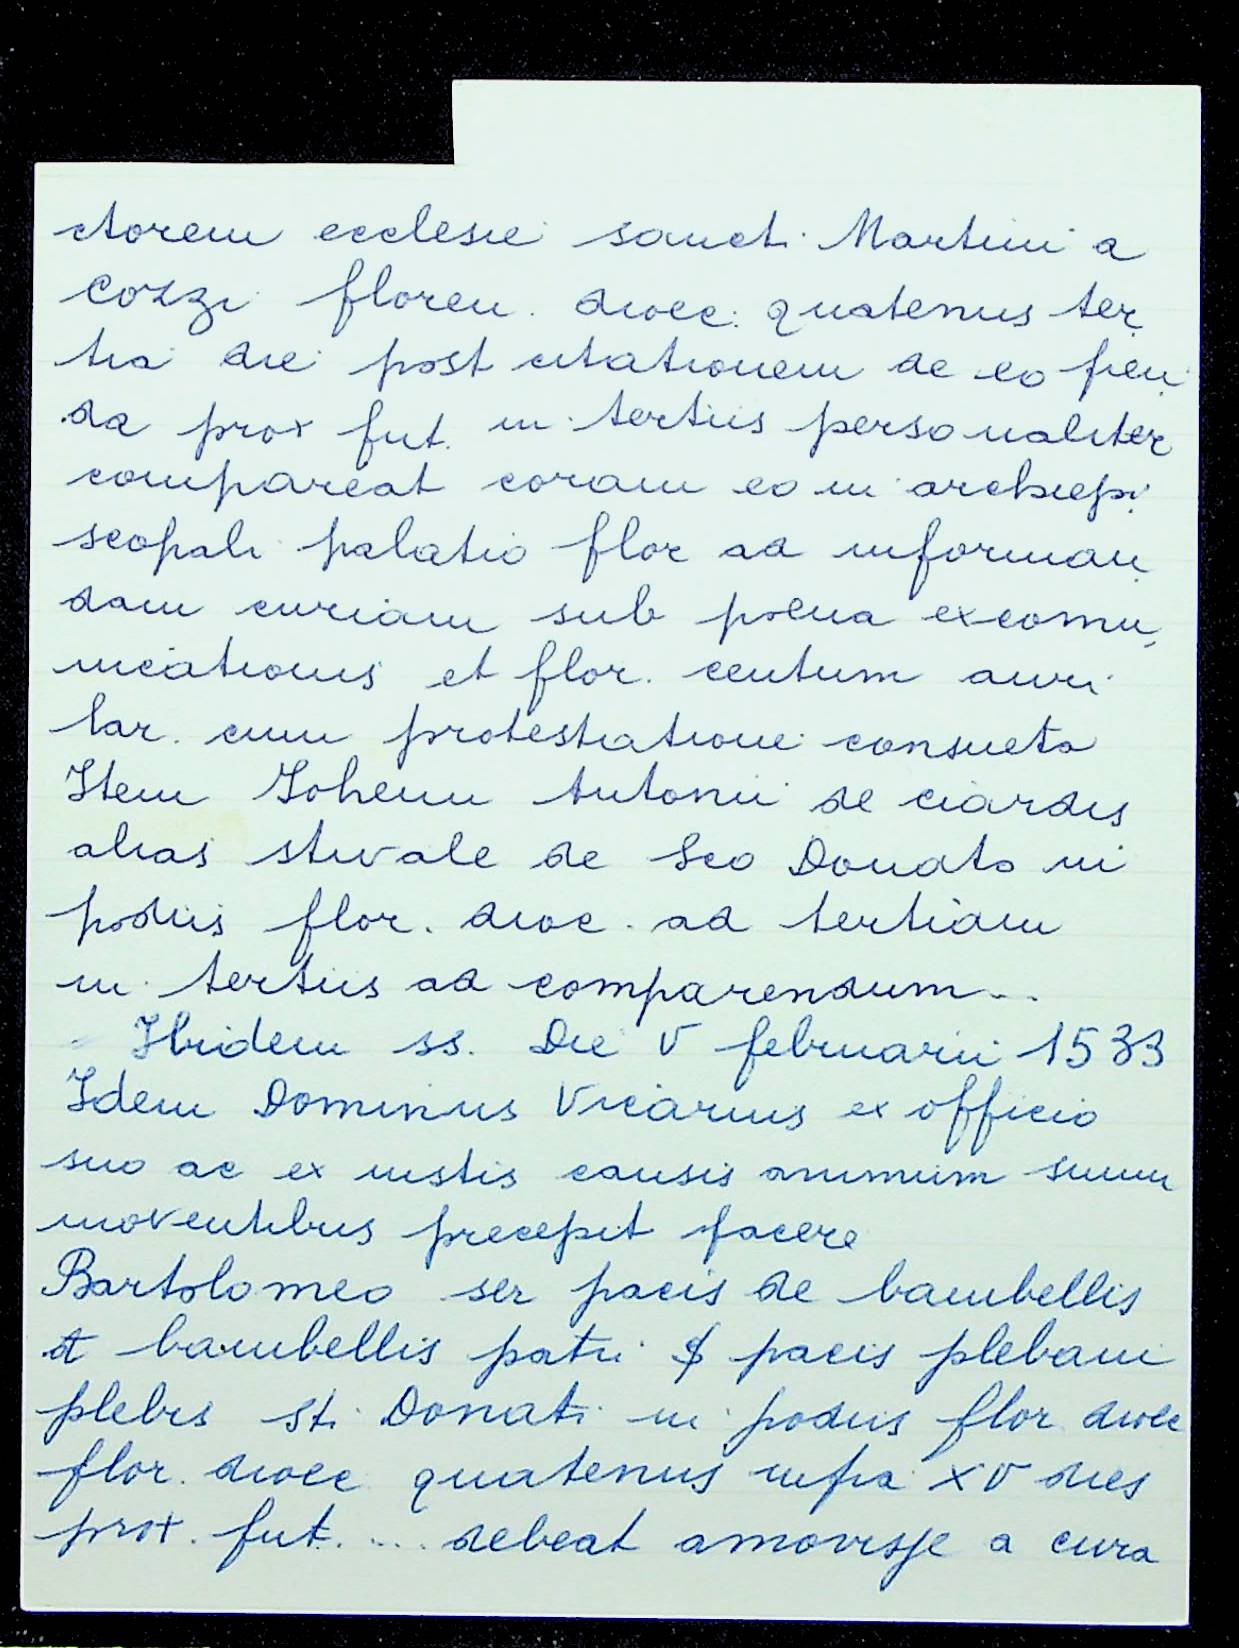 ctorem ecclesie sancti Martini a
Cozzi floren. dioec. quatenus ter,
tia die post citationem de eo fien,
da prox fut. in tertiis personaliter
compareat coram eo in archiepi,
scopali palatio flor ad informan,
dam curiam sub poena excomu,
nicationis et flor. centum auri
lar. cum protestiatione consueta
Item Iohenn Antonii de ciardis
alias stivale de Sco Donato in
podiis flor. dioc. ad tertiam
in tertiis ad comparendum...
Ibidem ss. Die V februarii 1533
Idem Dominus Vicarius ex officio
suo ac ex iustis causis animum suum
moventibus precepit facere
Bartolomeo ser pacis de bambellis
et bambellis patri $ pacis plebani
plebis sti Donati in podiis flor dioce
flor. dioce quatenus infra XV dies
prox. fut. .... debeat amovisse a cura